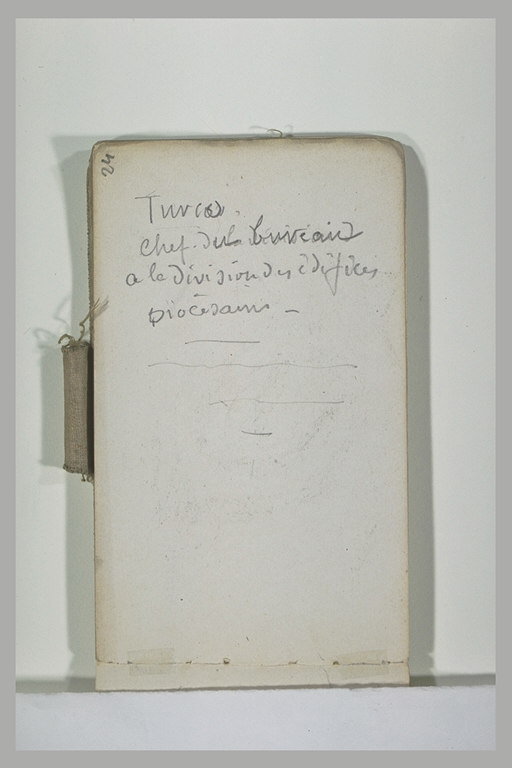 24
chef du bureau
a la division des édifices
Diocésains –